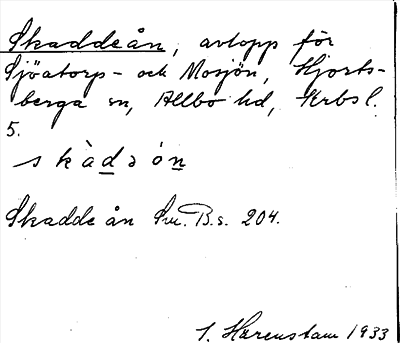 Skaddeån, avlopp för
Sjöatorp- och Mosjön, Hjorts-
berga sn, Allbo hd, Krbs l.
5.
s k à d ə ó n
Skadde ån Sv. B.s. 204.
Harenstam 1933